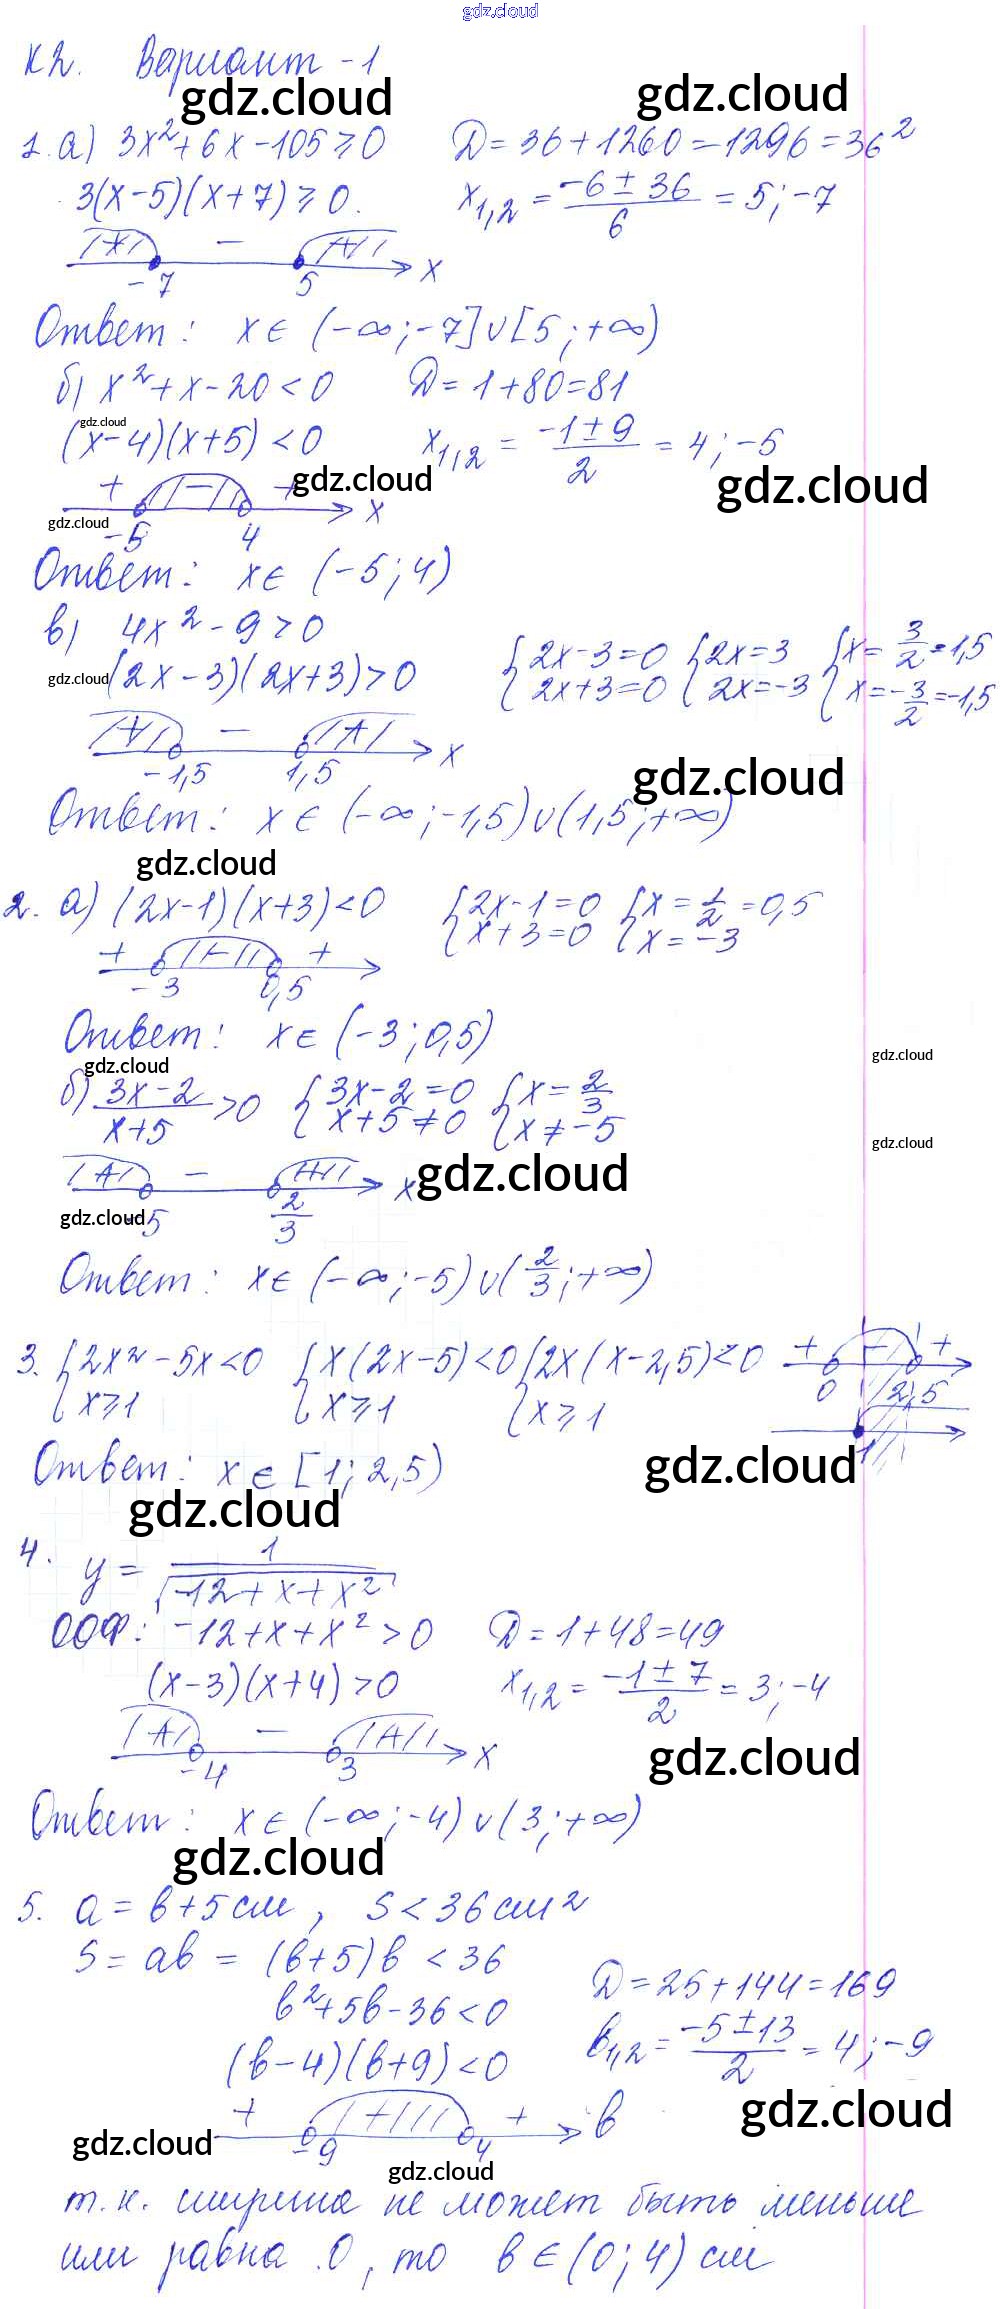 gdz.cloud
К2. Вариант -1
gdz.cloud gdz.cloud
1. а) 3x²+6x-105≥0 D=36+1260=1296=36²
3(x-5)(x+7)≥0. x₁,₂ = (-6±36)/6 = 5; -7
+ - + x
-7 5
Ответ: x∈(-∞;-7]∪[5;+∞)
б) x²+x-20<0 D=1+80=81
gdz.cloud
(x-4)(x+5)<0 x₁,₂ = (-1±9)/2 = 4; -5
+ - + x
gdz.cloud gdz.cloud
gdz.cloud
-5 4
Ответ: x∈(-5;4)
в) 4x²-9>0
gdz.cloud
(2x-3)(2x+3)>0 {2x-3=0 {2x=3 {x=3/2=1,5
2x+3=0 2x=-3 x=-3/2=-1,5
+ - + x
-1,5 1,5
gdz.cloud
Ответ: x∈(-∞;-1,5)∪(1,5;+∞)
gdz.cloud
2. а) (2x-1)(x+3)<0 {2x-1=0 {x=1/2=0,5
x+3=0 x=-3
+ - +
-3 0,5
Ответ: x∈(-3;0,5)
gdz.cloud gdz.cloud
б) (3x-2)/(x+5)>0 {3x-2=0 {x=2/3
x+5≠0 x≠-5
gdz.cloud
+ - + x
gdz.cloud
gdz.cloud
-5 2/3
Ответ: x∈(-∞;-5)∪(2/3;+∞)
3. {2x²-5x<0 {x(2x-5)<0 {2x(x-2,5)<0 + - +
x≥1 x≥1 x≥1 0 2,5
1
Ответ: x∈[1;2,5)
gdz.cloud
gdz.cloud
4. y = 1/√(-12+x+x²)
ООФ: -12+x+x²>0 D=1+48=49
(x-3)(x+4)>0 x₁,₂ = (-1±7)/2 = 3; -4
+ - + x
-4 3
gdz.cloud
Ответ: x∈(-∞;-4)∪(3;+∞)
gdz.cloud
5. a=b+5см, S<36см²
S=ab=(b+5)b<36
b²+5b-36<0 D=25+144=169
(b-4)(b+9)<0 b₁,₂ = (-5±13)/2 = 4; -9
+ + + b
-9 4
gdz.cloud
gdz.cloud
gdz.cloud
т.к. ширина не может быть меньше
или равна 0, то b∈(0;4) см